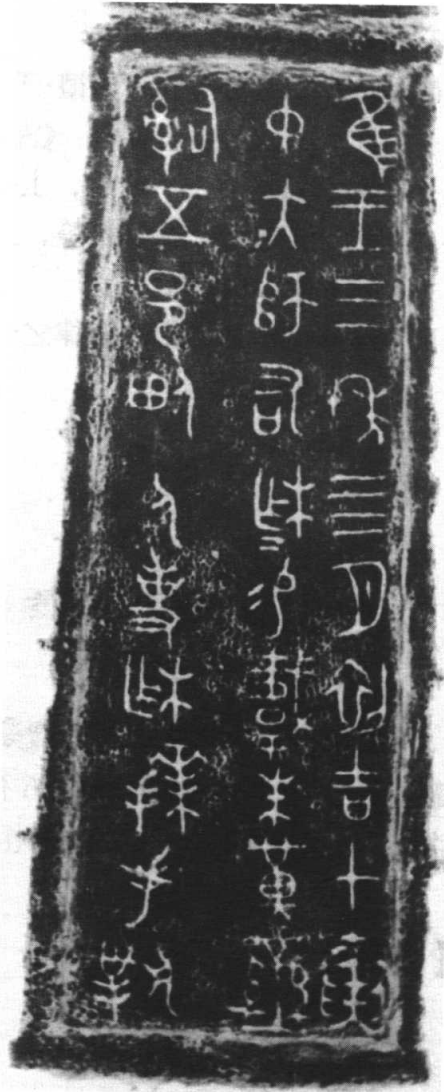 隹王三年四月初吉甲寅
中大師右柞=易載朱黃䜌
𤔲五邑佃人事柞拜手對